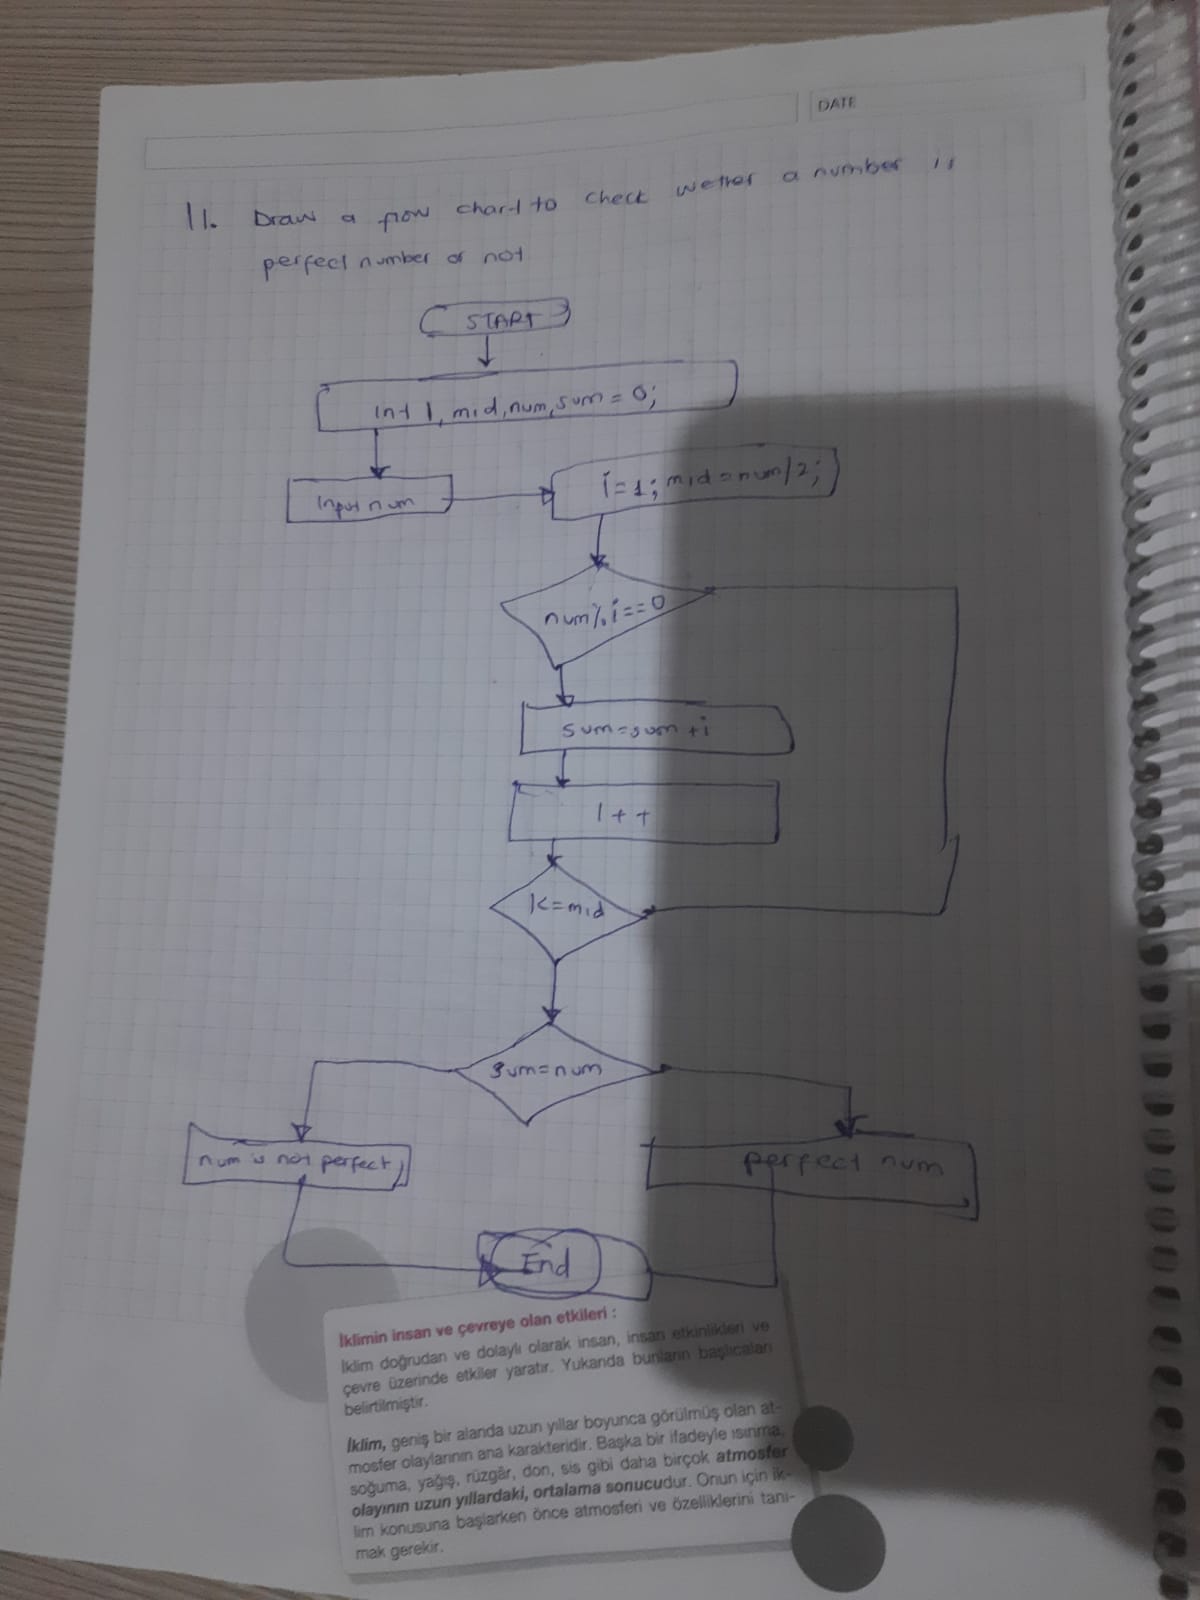 DATE
11. Draw a flow chart to check wether a number is
perfect number or not
START
int i, mid, num, sum = 0;
input num
i=1; mid=num/2;
num%i==0
sum=sum+i
i++
i<=mid
sum=num
num is not perfect
perfect num
End
İklimin insan ve çevreye olan etkileri :
İklim doğrudan ve dolaylı olarak insan, insan etkinlikleri ve
çevre üzerinde etkiler yaratır. Yukarıda bunların başlıcaları
belirtilmiştir.
İklim, geniş bir alanda uzun yıllar boyunca görülmüş olan at-
mosfer olaylarının ana karakteridir. Başka bir ifadeyle ısınma,
soğuma, yağış, rüzgâr, don, sis gibi daha birçok atmosfer
olayının uzun yıllardaki, ortalama sonucudur. Onun için ik-
lim konusuna başlarken önce atmosferi ve özelliklerini tanı-
mak gerekir.